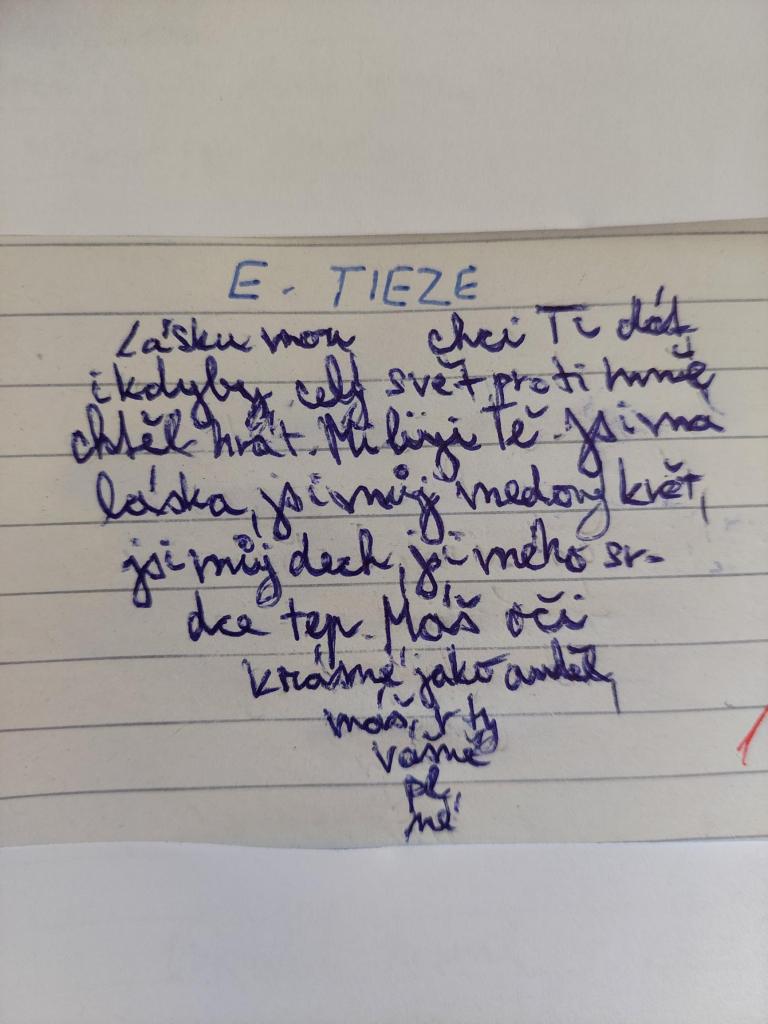 E. TIEZE
Lásku mou chci Ti dát
i kdyby celý svět proti mně
chtěl hrát. Miluji Tě. Jsi má
láska, jsi můj medový květ,
jsi můj dech, jsi mého sr-
dce tep. Máš oči
krásné jako anděl,
máš rty
vášně
pl
né